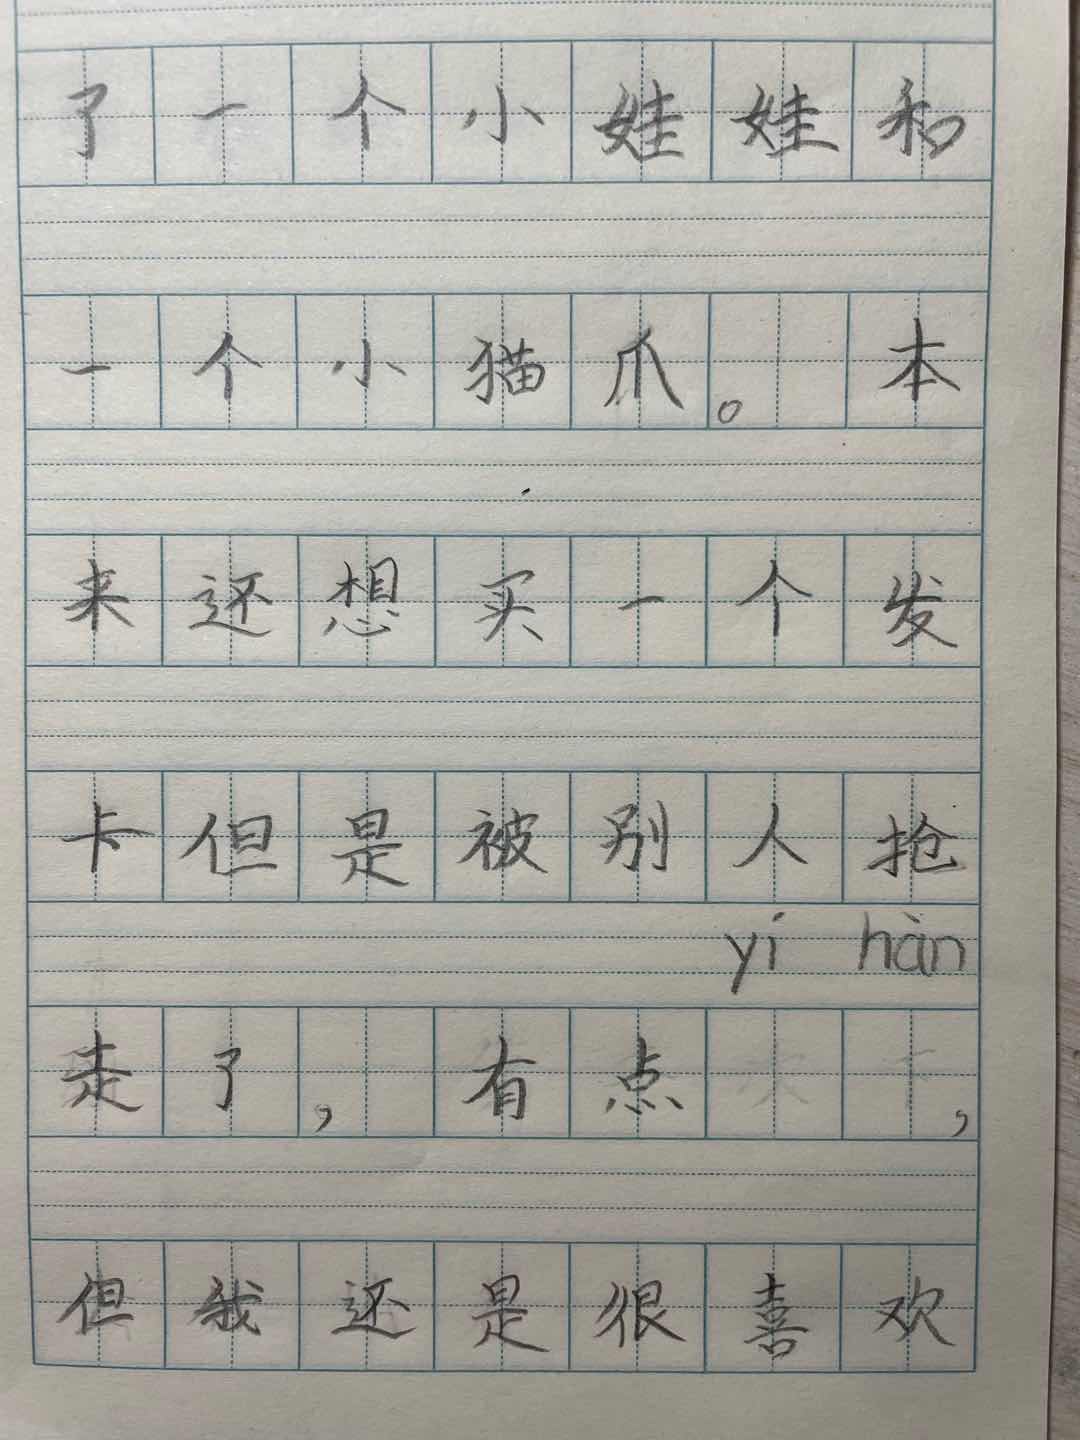 了一个小娃娃和
一个小猫爪。本
来还想买一个发
卡但是被别人抢
yí hàn
走了,有点,
但我还是很喜欢